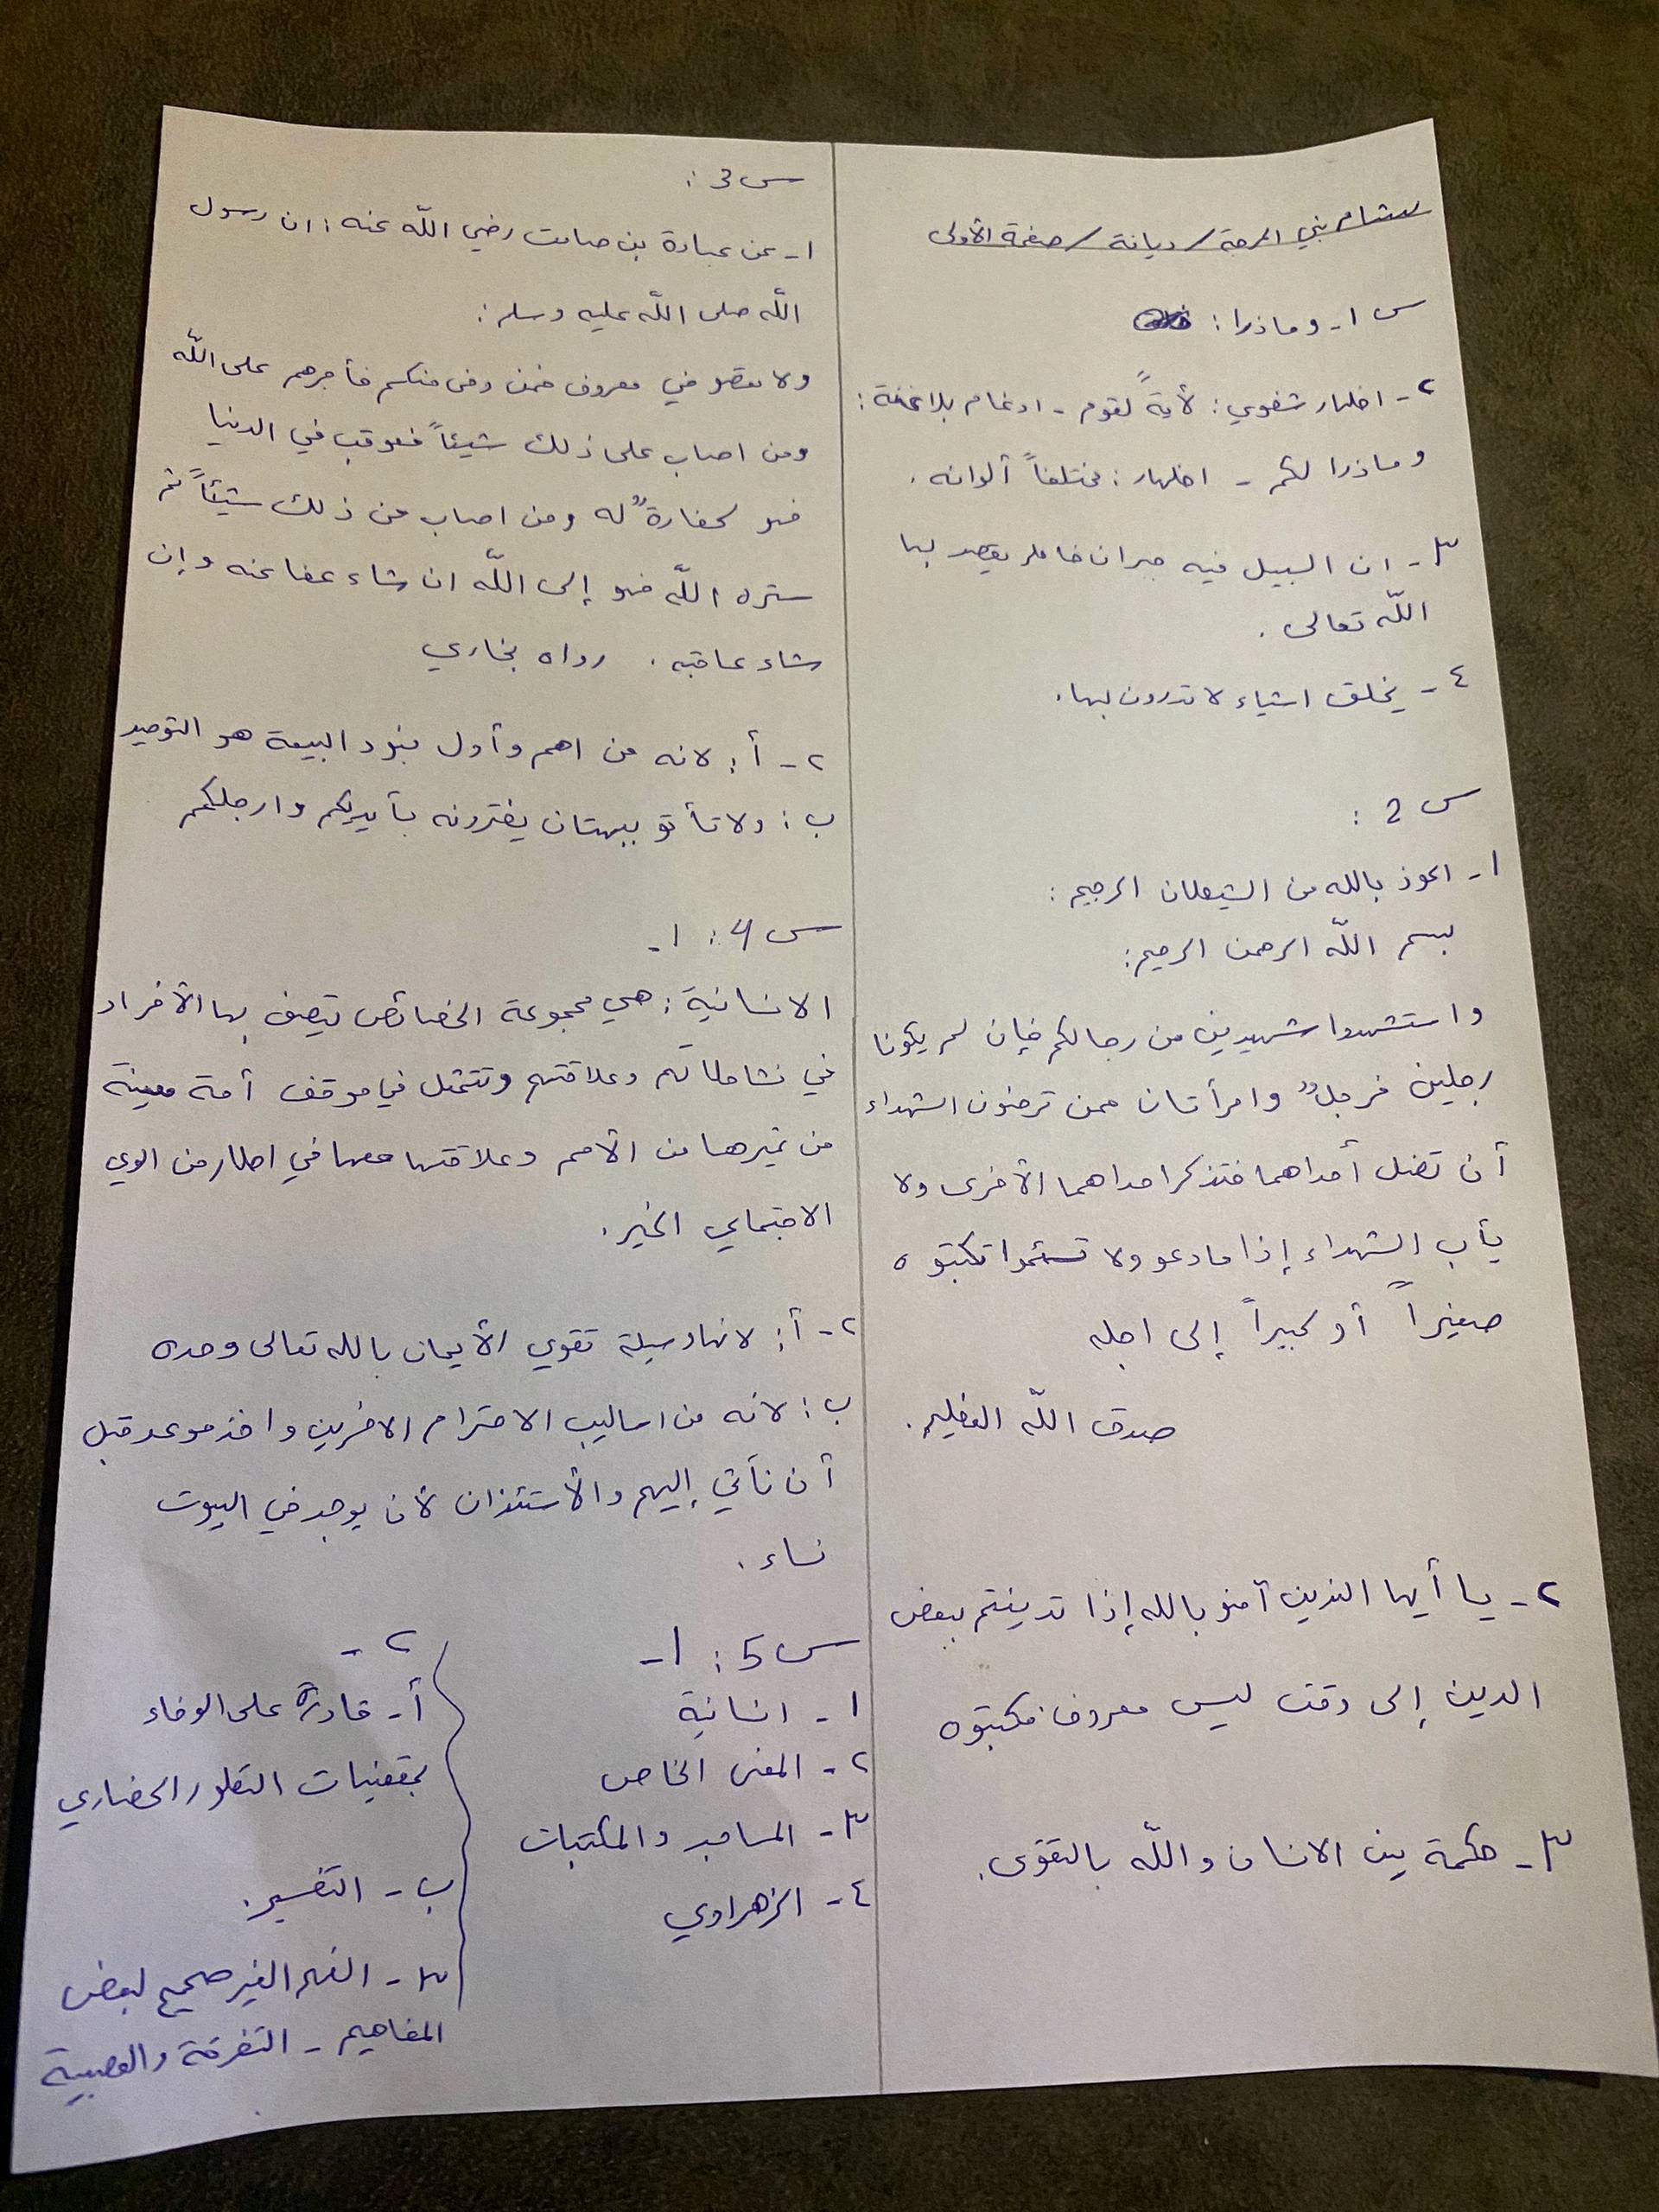 هشام بني المرجة / ديانة / صفحة الأولى
س ١- وماذرا :
٢- اظهار شفوي : لأيةً لقوم - ادغام بلا غنة :
وماذرا لكم - اظهار : مختلفاً ألوانه .
٣- ان السبيل فيه يقصد بها
الله تعالى .
٤- يخلق اشياء لا تدرون بها .
س 2 :
١- اعوذ بالله من الشيطان الرجيم :
بسم الله الرحمن الرحيم :
واستشهدوا شهيدين من رجالكم فإن لم يكونا
رجلين فرجلٌ وامرأتان ممن ترضون الشهداء
أن تضل أحداهما فتذكر احداهما الأخرى ولا
يأب الشهداء إذا ما دعو ولا تسئموا تكتبوه
صغيراً أو كبيراً إلى اجله
صدق الله العظيم .
٢- يا أيها الذين آمنو بالله إذا تدينتم ببعض
الدين إلى وقت ليس معروف فكتبوه
٣- حكمة بين الانسان والله بالتقوى .
س 3 :
١- عن عبادة بن صامت رضي الله عنه : ان رسول
الله صلى الله عليه وسلم :
ولا تعصو في معروف فمن وفى منكم فأجرهم على الله
ومن اصاب على ذلك شيئاً فعوقب في الدنيا
فهو كفارةٌ له ومن اصاب من ذلك شيئاً ثم
ستره الله فهو إلى الله ان شاء عفا عنه وإن
شاء عاقبه . رواه بخاري
٢- أ : لانه من اهم وأول بنود البيعة هو التوحيد
ب : ولا تأتو ببهتان يفترونه بأيديكم وارجلكم
س 4 : ١-
الانسانية : هي مجموعة الخصائص تيصف بها الأفراد
في نشاطاتهم وعلاقتهم وتتمثل في موقف أمة معينة
من غيرها من الأمم وعلاقتها معها في اطار من الوعي
الاجتماعي الخير .
٢- أ : لانها وسيلة تقوي الأيمان بالله تعالى وحده
ب : لانه من اساليب الاحترام الاخرين واخذ موعد قبل
أن نأتي إليهم والأستئذان لأن يوجد في البيوت
نساء .
س 5 : ١-
١- انسانية
٢- المعنى الخاص
٣- المساجد والمكتبات
٤- الزهراوي
٢-
أ- قادرة على الوفاء
بمقتضيات التطور الحضاري
ب- التفسير .
٣- الفهم الغير صحيح لبعض
المفاهيم - التفرقة والعصبية